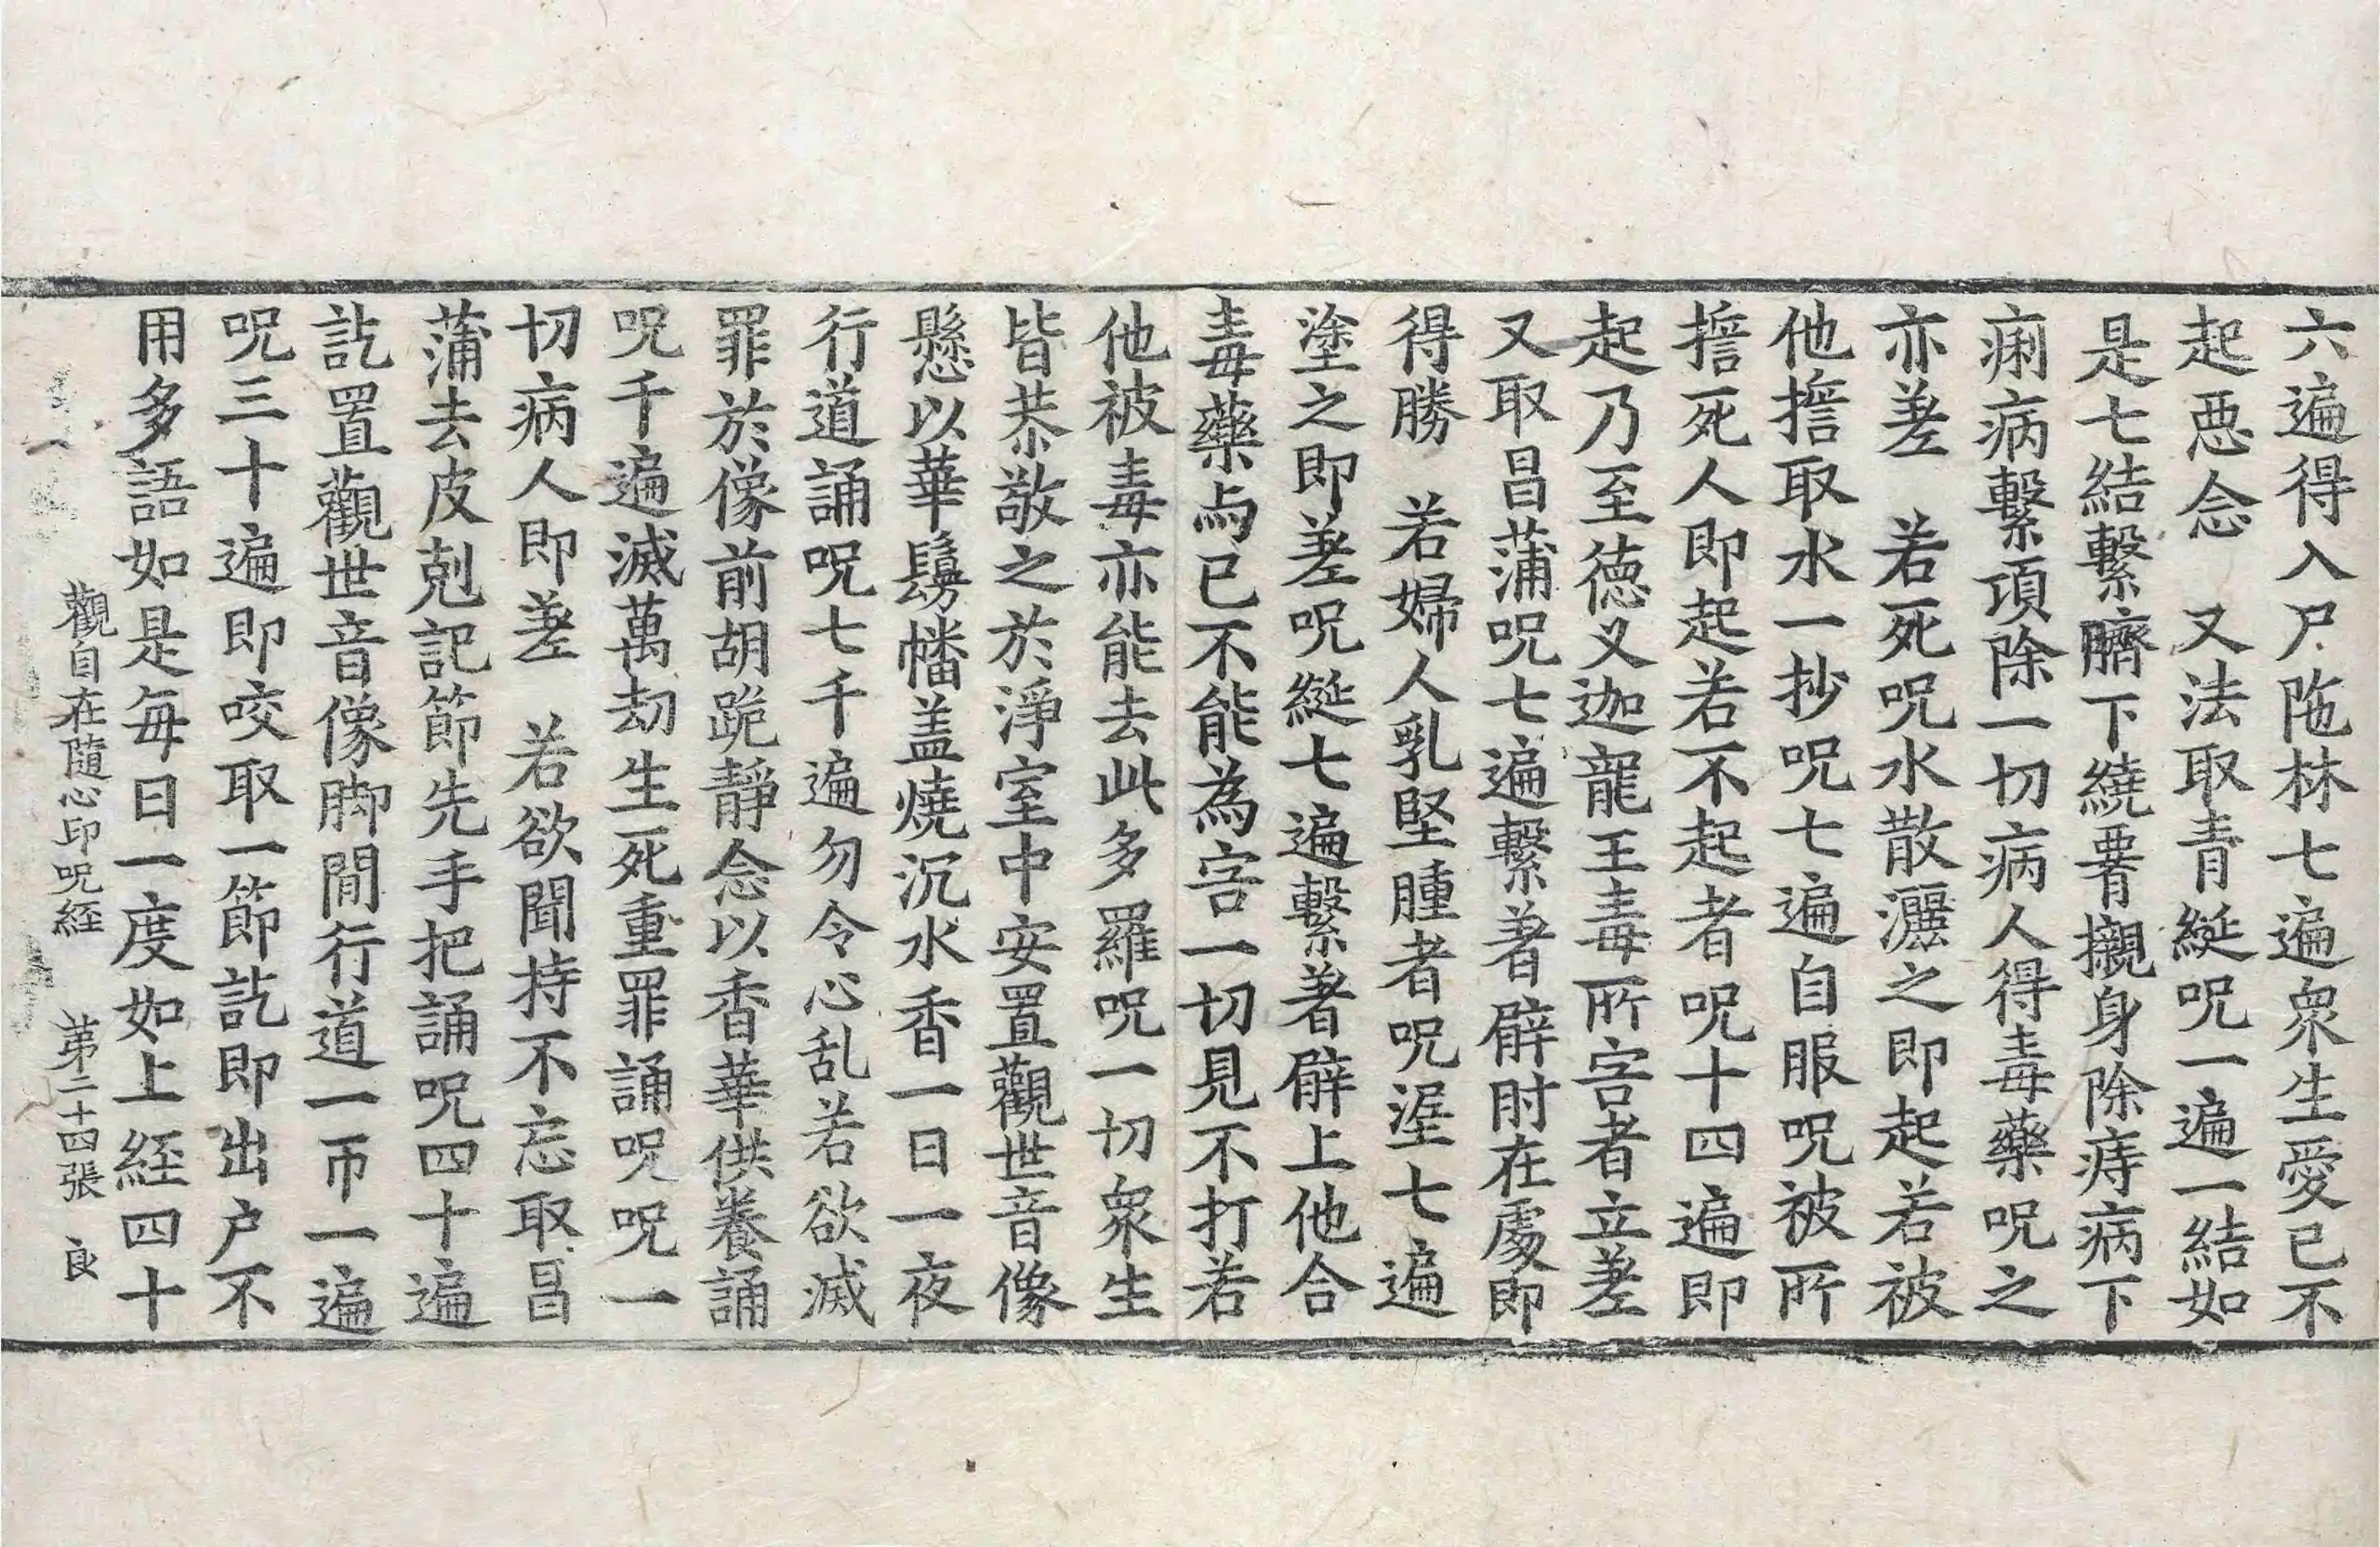 六遍得入尸陁林七遍衆生愛已不
起惡念　又法取青綖呪一遍一結如
是七結繫臍下繞署襯身除痔病下
痢病繫項除一切病人得毒藥呪之
亦差　若死呪水散灑之即起若被
他擔取水一抄呪七遍自服呪被所
擔死人即起若不起者呪十四遍即
起乃至德叉迦龍王毒所害者立差
又取昌蒲呪七遍繫著臂肘在處即
得勝　若婦人乳堅腫者呪渥七遍
塗之即差呪綖七遍繫著臂上他合
毒藥与已不能為害一切見不打若
他被毒亦能去此多羅呪一切衆生
皆恭敬之於淨室中安置觀世音像
懸以華鬘幡盖燒沉水香一日一夜
行道誦呪七千遍勿令心乱若欲滅
罪於像前胡跪靜念以香華供養誦
呪千遍滅萬劫生死重罪誦呪呪一
切病人即差　若欲聞持不忘取昌
蒲去皮剋記節先手把誦呪四十遍
訖置觀世音像脚間行道一帀一遍
呪三十遍即咬取一節訖即出户不
用多語如是每日一度如上經四十
觀自在隨心印呪経　第二十四張　良